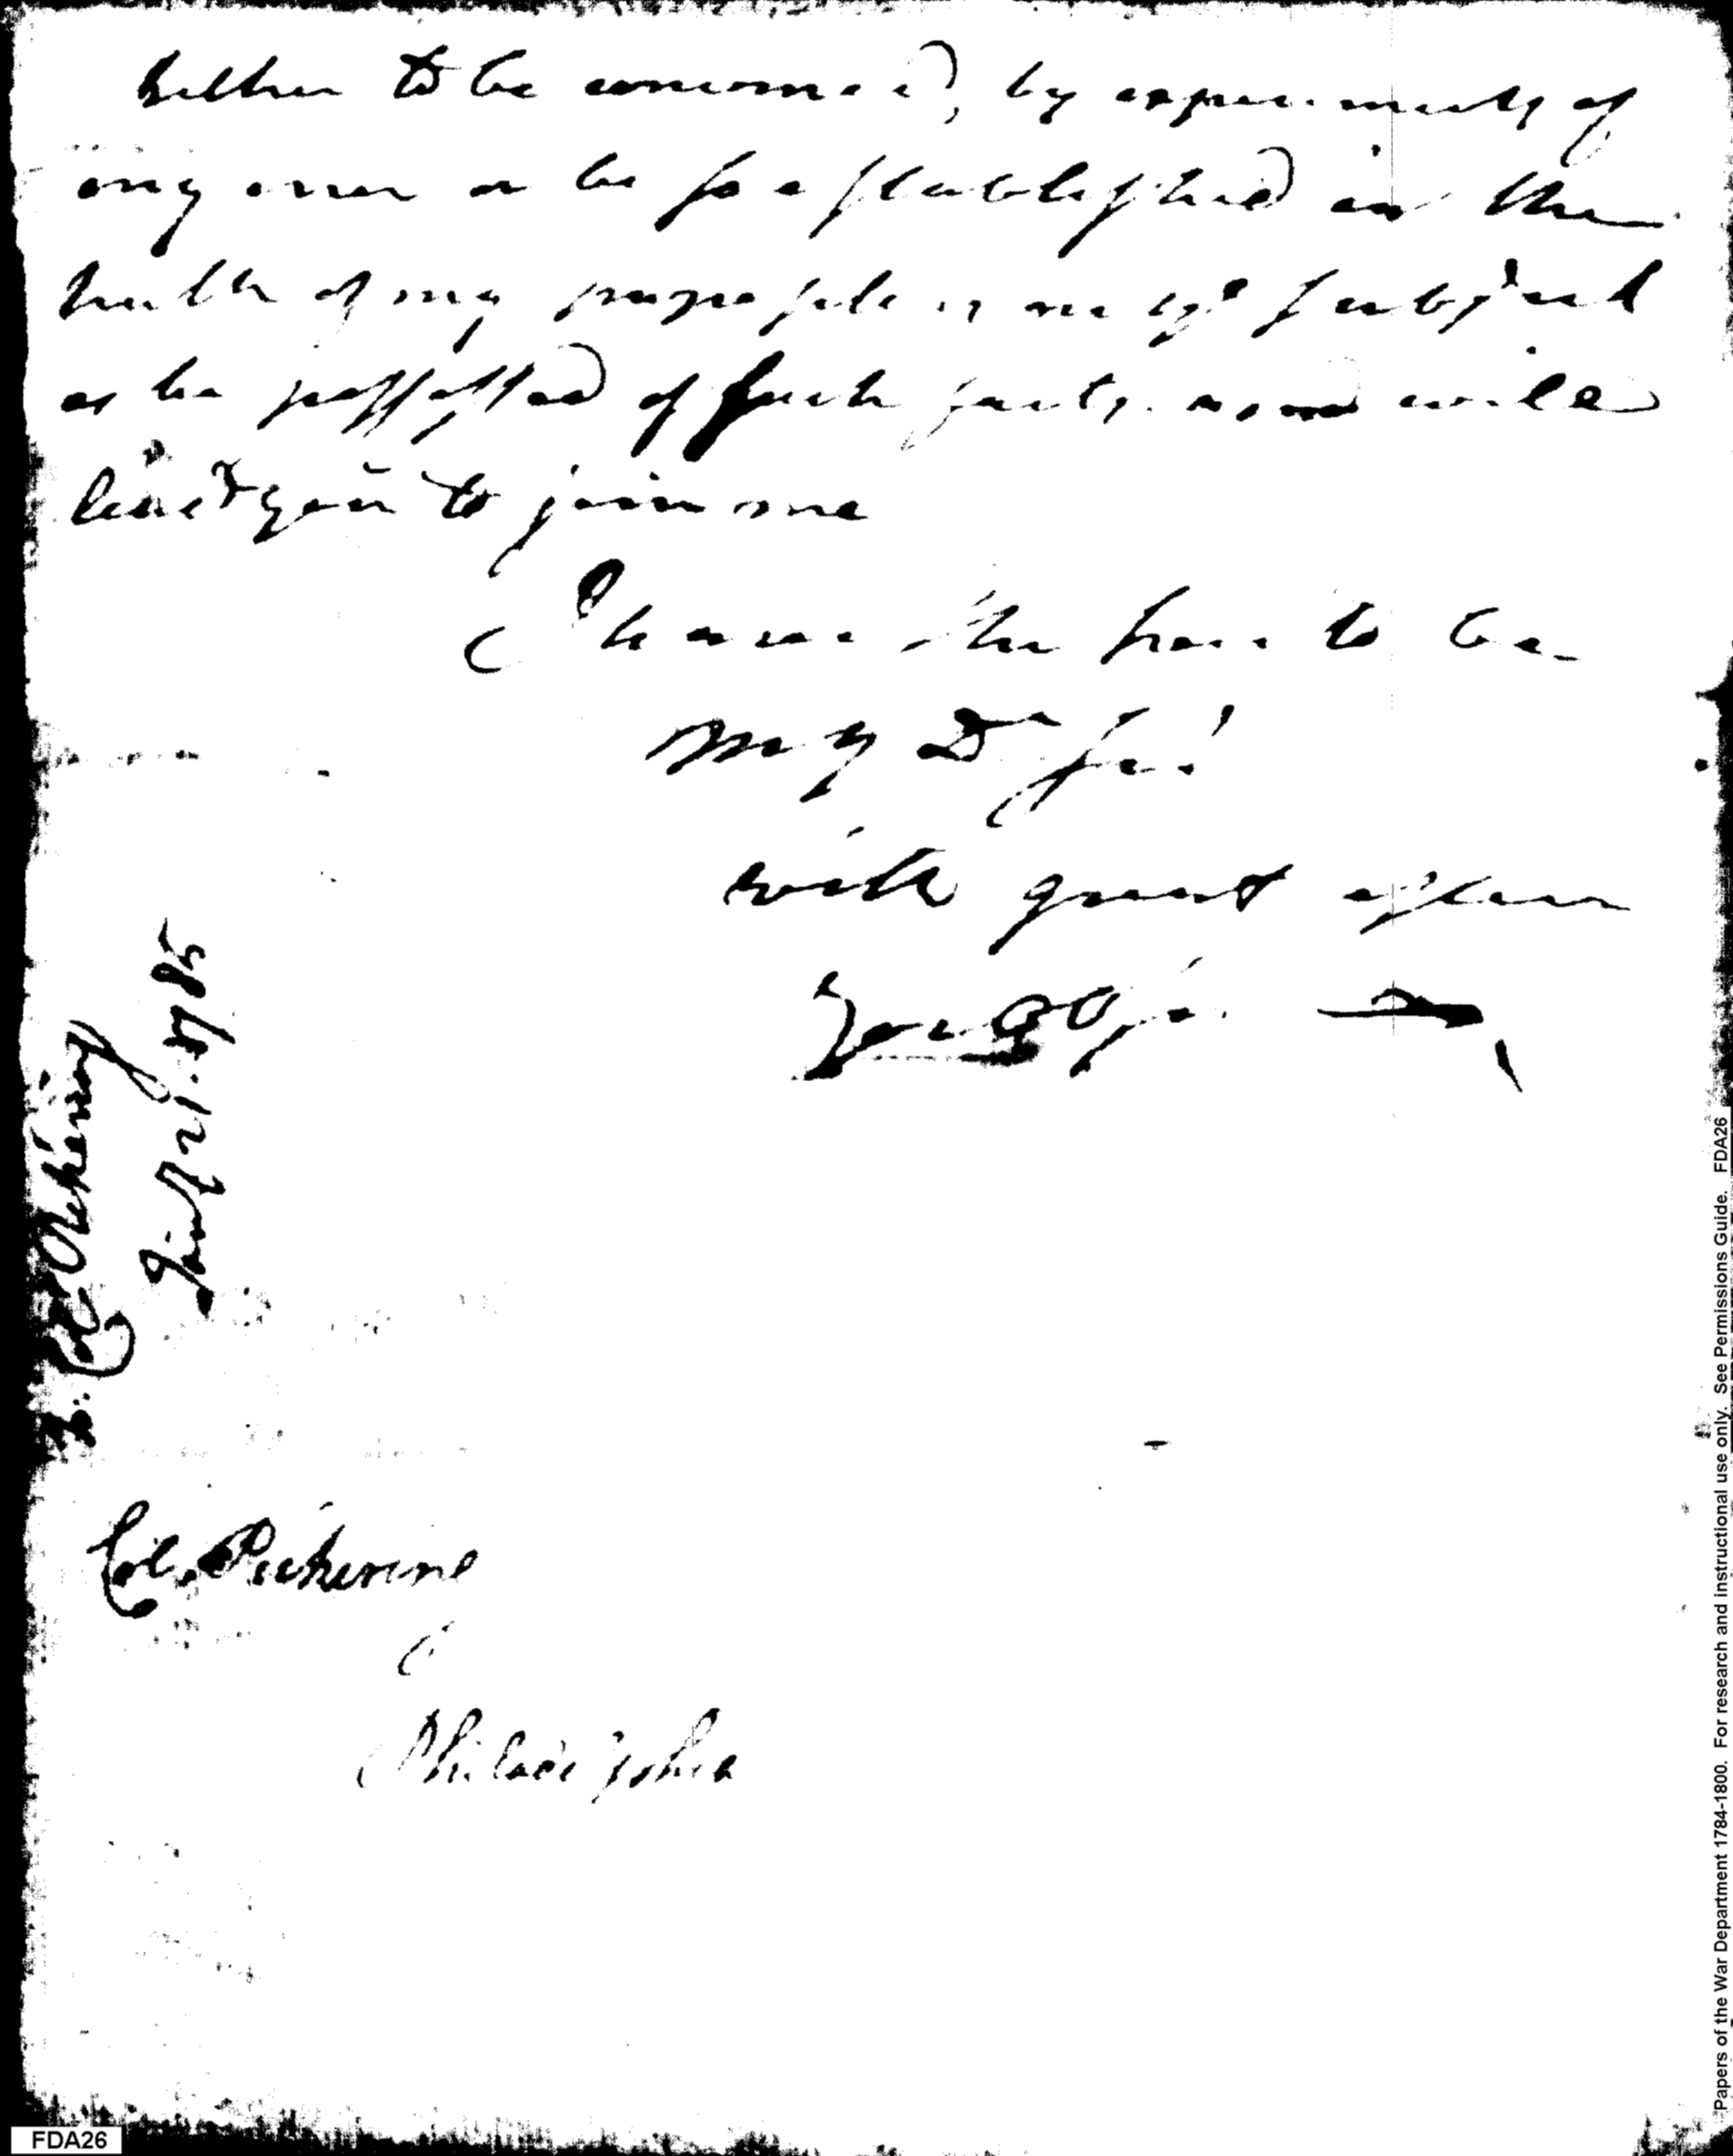 either to be convinced, by experiments of
my error or be so established in the
truth of my proposition on yͤ subject
as be possessed of such facts as will
lead you to join me
I have the hon. to be
my Dr sir
with great esteem
Col. Pickering
July 21. 1785
Col. Pickering
Philadelphia
Papers of the War Department 1784-1800. For research and instructional use only. See Permissions Guide. FDA26
FDA26